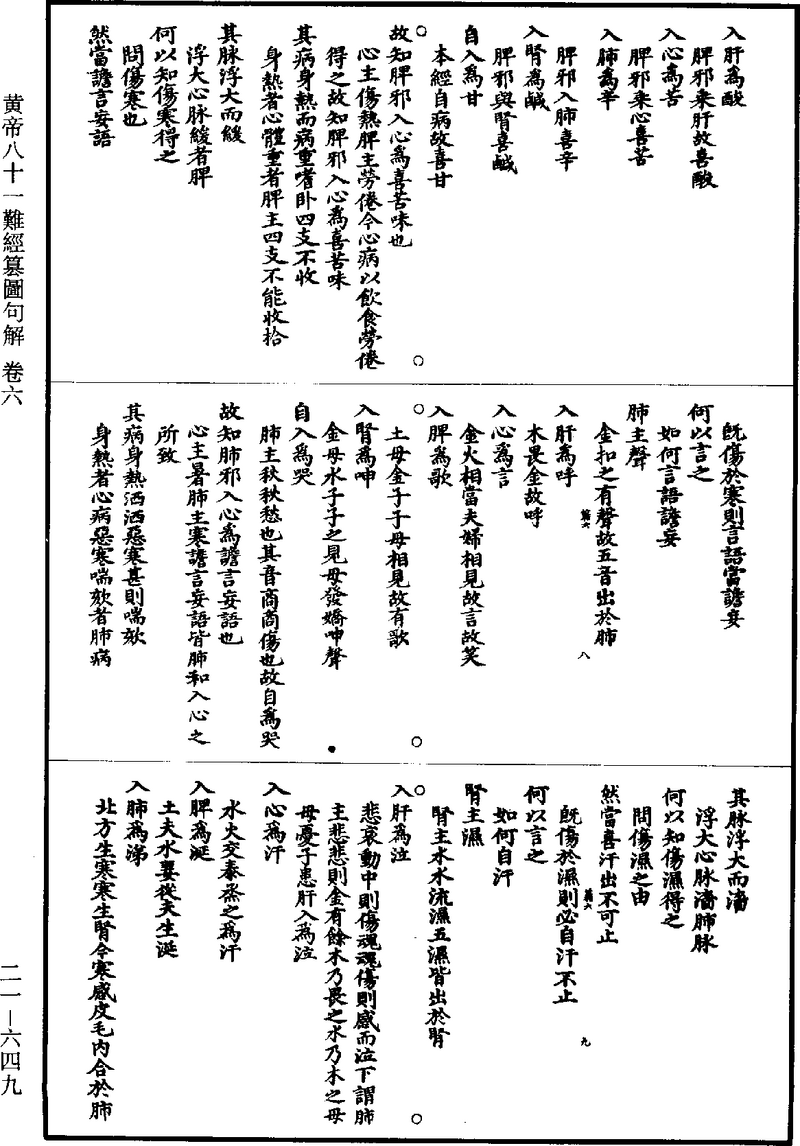 入肝為酸
脾邪乘肝故喜酸
入心為苦
脾邪乘心喜苦
入肺為辛
脾邪入肺喜辛
入腎為鹹
脾邪與腎喜鹹
自入為甘
本經自病故喜甘
故知脾邪入心為喜苦味也
心主傷熱脾主勞倦今心病以飲食勞倦
得之故知脾邪入心為喜苦味
其病身熱而病重嗜卧四支不收
身熱者心體重者脾主四支不能收拾
其脉浮大而緩
浮大心脉緩者脾
何以知傷寒得之
問傷寒也
然當譫言妄語
既傷於寒則言語當譫妄
何以言之
如何言語譫妄
肺主聲
金扣之有聲故五音出於肺
入肝為呼
木畏金故呼
入心為言
金火相當夫婦相見故言故笑
入脾為歌
土母金子子母相見故有歌
入腎為呻
金母水子子之見母發嬌呻聲
自入為哭
肺主秋秋愁也其音商商傷也故自為哭
故知肺邪入心為譫言妄語也
心主暑肺主寒譫言妄語皆肺和入心之
所致
其病身熱洒洒惡寒甚則喘欬
身熱者心病惡寒喘欬者肺病
八
其脉浮大而濇
浮大心脉濇肺脉
何以知傷濕得之
問傷濕之由
然當喜汗出不可止
既傷於濕則必自汗不止
何以言之
如何自汗
腎主濕
腎主水水流濕五濕皆出於腎
入肝為泣
悲哀動中則傷魂魂傷則感而泣下謂肺
主悲悲則金有餘木乃畏之水乃木之母
母憂子患肝入為泣
入心為汗
水火交泰烝之為汗
入脾為涎
土夫水妻從夫生涎
入肺為涕
北方生寒寒生腎令寒感皮毛內合於肺
九
黄帝八十一難經篡圖句解 卷六
二一—六四九